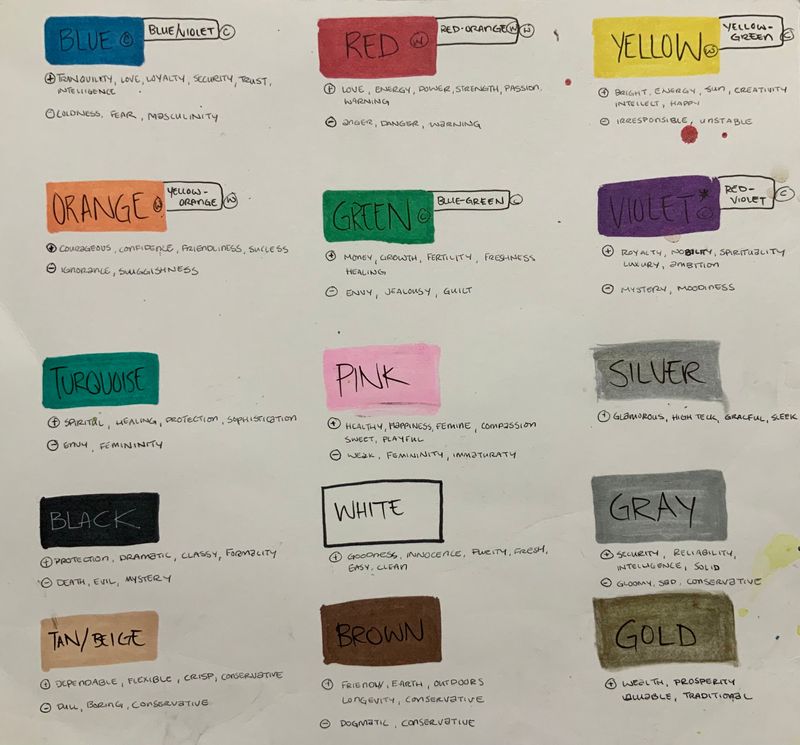 BLUE C BLUE/VIOLET C
+ TRANQUILITY, LOVE, LOYALTY, SECURITY, TRUST,
INTELLIGENCE
- COLDNESS, FEAR, MASCULINITY
RED W RED-ORANGE W W
+ LOVE, ENERGY, POWER, STRENGTH, PASSION,
WARNING
- ANGER, DANGER, WARNING
YELLOW W YELLOW-
GREEN C
+ BRIGHT, ENERGY, SUN, CREATIVITY
INTELLECT, HAPPY
- IRRESPONSIBLE, UNSTABLE
ORANGE W YELLOW-
ORANGE W
+ COURAGEOUS, CONFIDENCE, FRIENDLINESS, SUCCESS
- IGNORANCE, SLUGGISHNESS
GREEN C BLUE-GREEN C
+ MONEY, GROWTH, FERTILITY, FRESHNESS
HEALING
- ENVY, JEALOUSY, GUILT
VIOLET * C RED-
VIOLET C
+ ROYALTY, NOBILITY, SPIRITUALITY
LUXURY, AMBITION
- MYSTERY, MOODINESS
TURQUOISE
+ SPIRITUAL, HEALING, PROTECTION, SOPHISTICATION
- ENVY, FEMININITY
PINK
+ HEALTHY, HAPPINESS, FEMINE, COMPASSION
SWEET, PLAYFUL
- WEAK, FEMININITY, IMMATURATY
SILVER
+ GLAMOROUS, HIGH TECH, GRACEFUL, SLEEK
BLACK
+ PROTECTION, DRAMATIC, CLASSY, FORMALITY
- DEATH, EVIL, MYSTERY
WHITE
+ GOODNESS, INNOCENCE, PURITY, FRESH,
EASY, CLEAN
GRAY
+ SECURITY, RELIABILITY,
INTELLIGENCE, SOLID
- GLOOMY, SAD, CONSERVATIVE
TAN/BEIGE
+ DEPENDABLE, FLEXIBLE, CRISP, CONSERVATIVE
- DULL, BORING, CONSERVATIVE
BROWN
+ FRIENDLY, EARTH, OUTDOORS
LONGEVITY, CONSERVATIVE
- DOGMATIC, CONSERVATIVE
GOLD
+ WEALTH, PROSPERITY
VALUABLE, TRADITIONAL